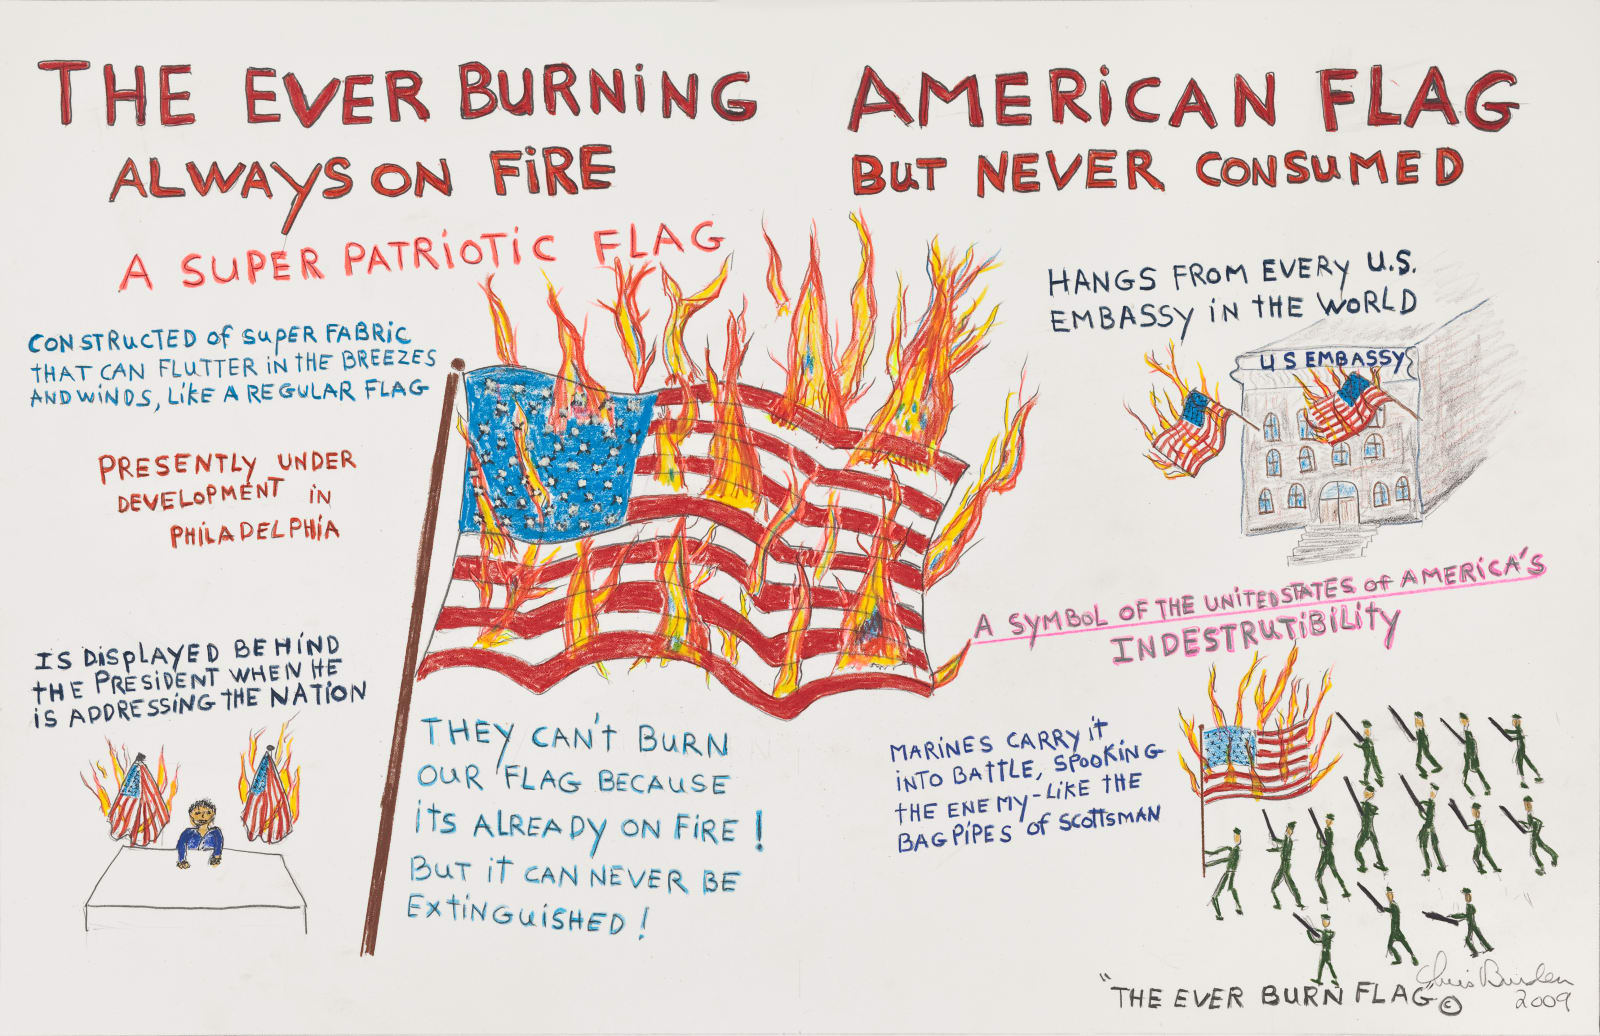 THE EVER BURNiNG AMERiCAN FLAG
ALWAYS ON FiRE BUT NEVER CONSUMED
A SUPER PATRiOTiC FLAG
CONSTRUCTED of SUPER FABRIC
THAT CAN FLUTTER IN THE BREEZES
AND WiNDS, LiKE A REGULAR FLAG
PRESENTLY UNDER
DEVELOPMENT iN
PHiLADELPHiA
IS DISPLAYED BEHIND
THE PRESIDENT WHEN HE
iS ADDRESSING THE NATION
THEY CAN't BURN
OUR FLAG BECAUSE
iTS ALREADY ON FiRE!
BUT iT CAN NEVER BE
EXTiNGUiSHED!
HANGS FROM EVERY U.S.
EMBASSY iN THE WORLD
U S EMBASSY
A SYMBOL OF THE UNITED STATES of AMERICA'S
INDESTRUTiBILiTY
MARINES CARRY iT
iNTO BATTLE, SPOOKiNG
THE ENEMY-LiKE THE
BAGPiPES of SCOTTSMAN
"THE EVER BURN FLAG" ©
Chris Burden
2009